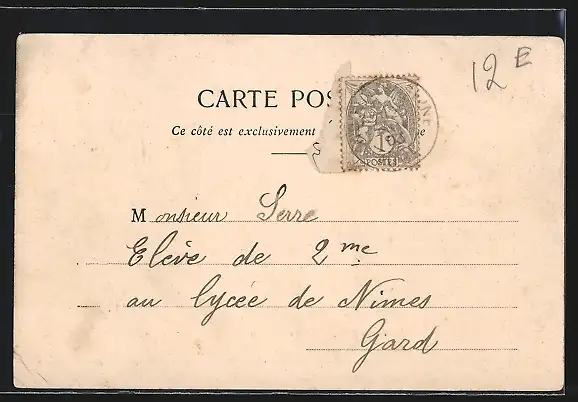 12 E
CARTE POS
Ce côté est exclusivement
POSTES
Monsieur Serre
Elève de 2me
au lycée de Nimes
Gard